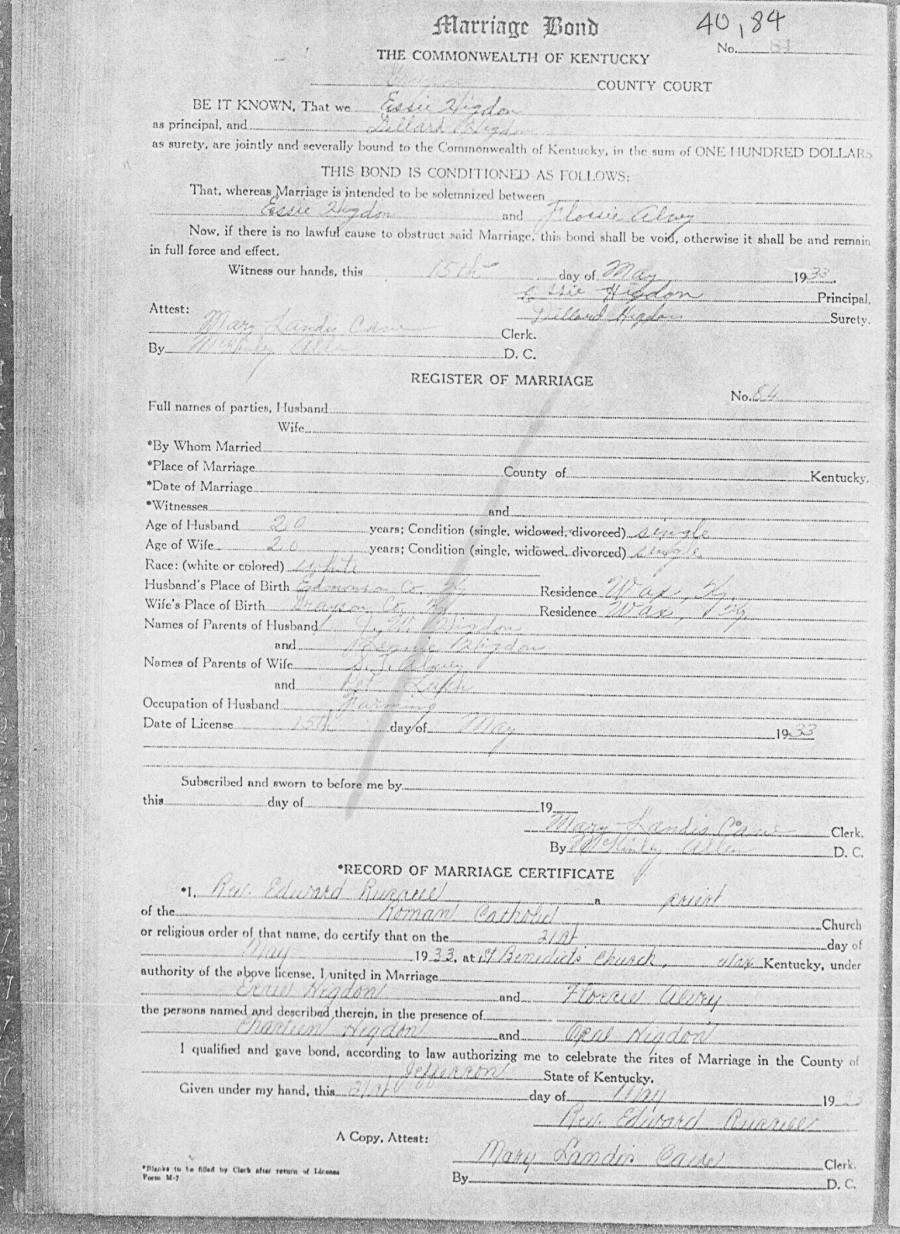 40,84
Marriage Bond
No. 84
THE COMMONWEALTH OF KENTUCKY
COUNTY COURT
BE IT KNOWN, That we Essie Higdon
as principal, and Dillard Higdon
as surety, are jointly and severally bound to the Commonwealth of Kentucky, in the sum of ONE HUNDRED DOLLARS
THIS BOND IS CONDITIONED AS FOLLOWS:
That, whereas Marriage is intended to be solemnized between
Essie Higdon and Flossie Alvey
Now, if there is no lawful cause to obstruct said Marriage, this bond shall be void, otherwise it shall be and remain
in full force and effect.
Witness our hands, this 15th day of May 1933.
Essie Higdon Principal.
Dillard Higdon Surety.
Attest:
Mary Landis Cave Clerk.
By McKinley Allen D. C.
REGISTER OF MARRIAGE
No. 84
Full names of parties, Husband
Wife
*By Whom Married
*Place of Marriage County of Kentucky.
*Date of Marriage
*Witnesses and
Age of Husband 20 years; Condition (single, widowed, divorced) single
Age of Wife 20 years; Condition (single, widowed, divorced) single
Race: (white or colored) white
Husband's Place of Birth Edmonson Co. Ky. Residence Wax, Ky.
Wife's Place of Birth Grayson Co. Ky. Residence Wax, Ky.
Names of Parents of Husband J. W. Higdon
and Higdon
Names of Parents of Wife Alvey
and
Occupation of Husband Farming
Date of License 15th day of May 1933
Subscribed and sworn to before me by
this day of 19
Mary Landis Cave Clerk.
By McKinley Allen D. C.
*RECORD OF MARRIAGE CERTIFICATE
*I, Rev. Edward Russell a priest
of the Roman Catholic Church
or religious order of that name, do certify that on the 21st day of
May 1933, at St Benedict's Church, Wax Kentucky, under
authority of the above license, I united in Marriage
Essie Higdon and Flossie Alvey
the persons named and described therein, in the presence of
Higdon and Opal Higdon
I qualified and gave bond, according to law authorizing me to celebrate the rites of Marriage in the County of
Jefferson State of Kentucky.
Given under my hand, this 21st day of May 1933
Rev. Edward Russell
A Copy, Attest:
Mary Landis Cave Clerk.
By D. C.
*Blanks to be filled by Clerk after return of License
Form M-7